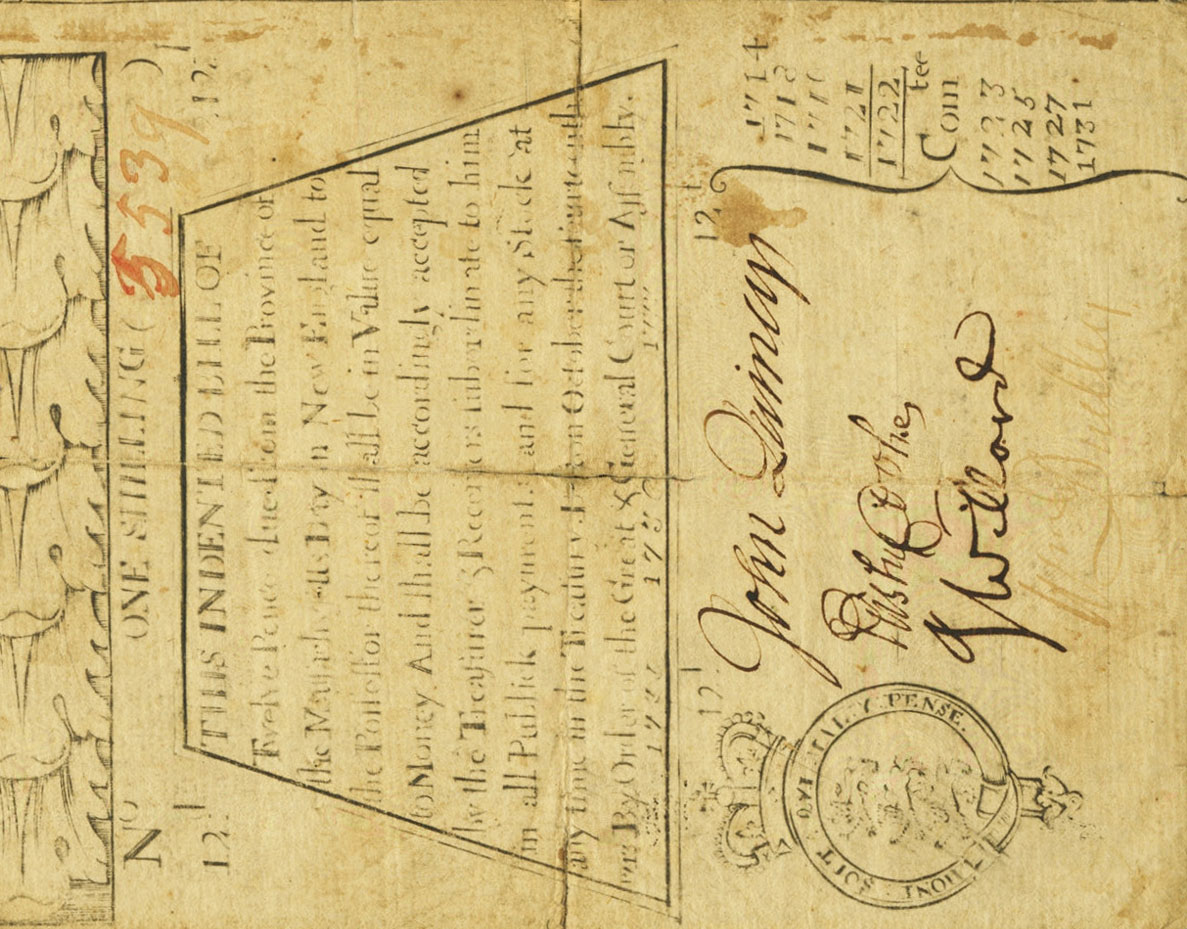 No ONE SHILLING ( 5539 )
12d 12d
THIS INDENTED BILL OF
Twelve Pence due from the Province of
the Massachusetts Bay in New England to
the Possessor thereof shall be in Value equal
to Money. And shall be accordingly accepted
by the Treasurer & Receivers subordinate to him
in all Publick payments and for any Stock at
any time in the Treasury. Boston October the fourteenth
By Order of the Great & General Court or Assembly.
12d 12d
John Quincy
Elisha Cooke
J Willard
1714
1718
1721
1722
Com tee
1723
1725
1727
1731
HONI SOIT QUI MAL Y PENSE.